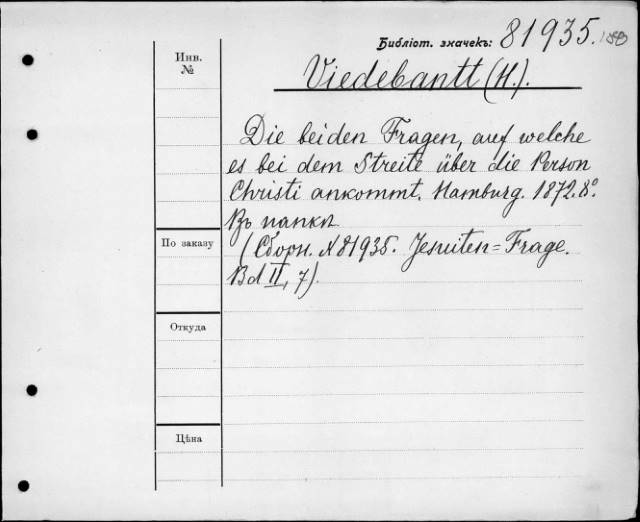 Библіот. значекъ: 81935.
Инв.
№
Viedebantt (H.).
Die beiden Fragen, auf welche
es bei dem Streite über die Person
Christi ankommt. Hamburg. 1872. 8°.
Въ папкѣ
По заказу
(Сборн. № 81935. Jesuiten=Frage.
Bd II, 7).
Откуда
Цѣна